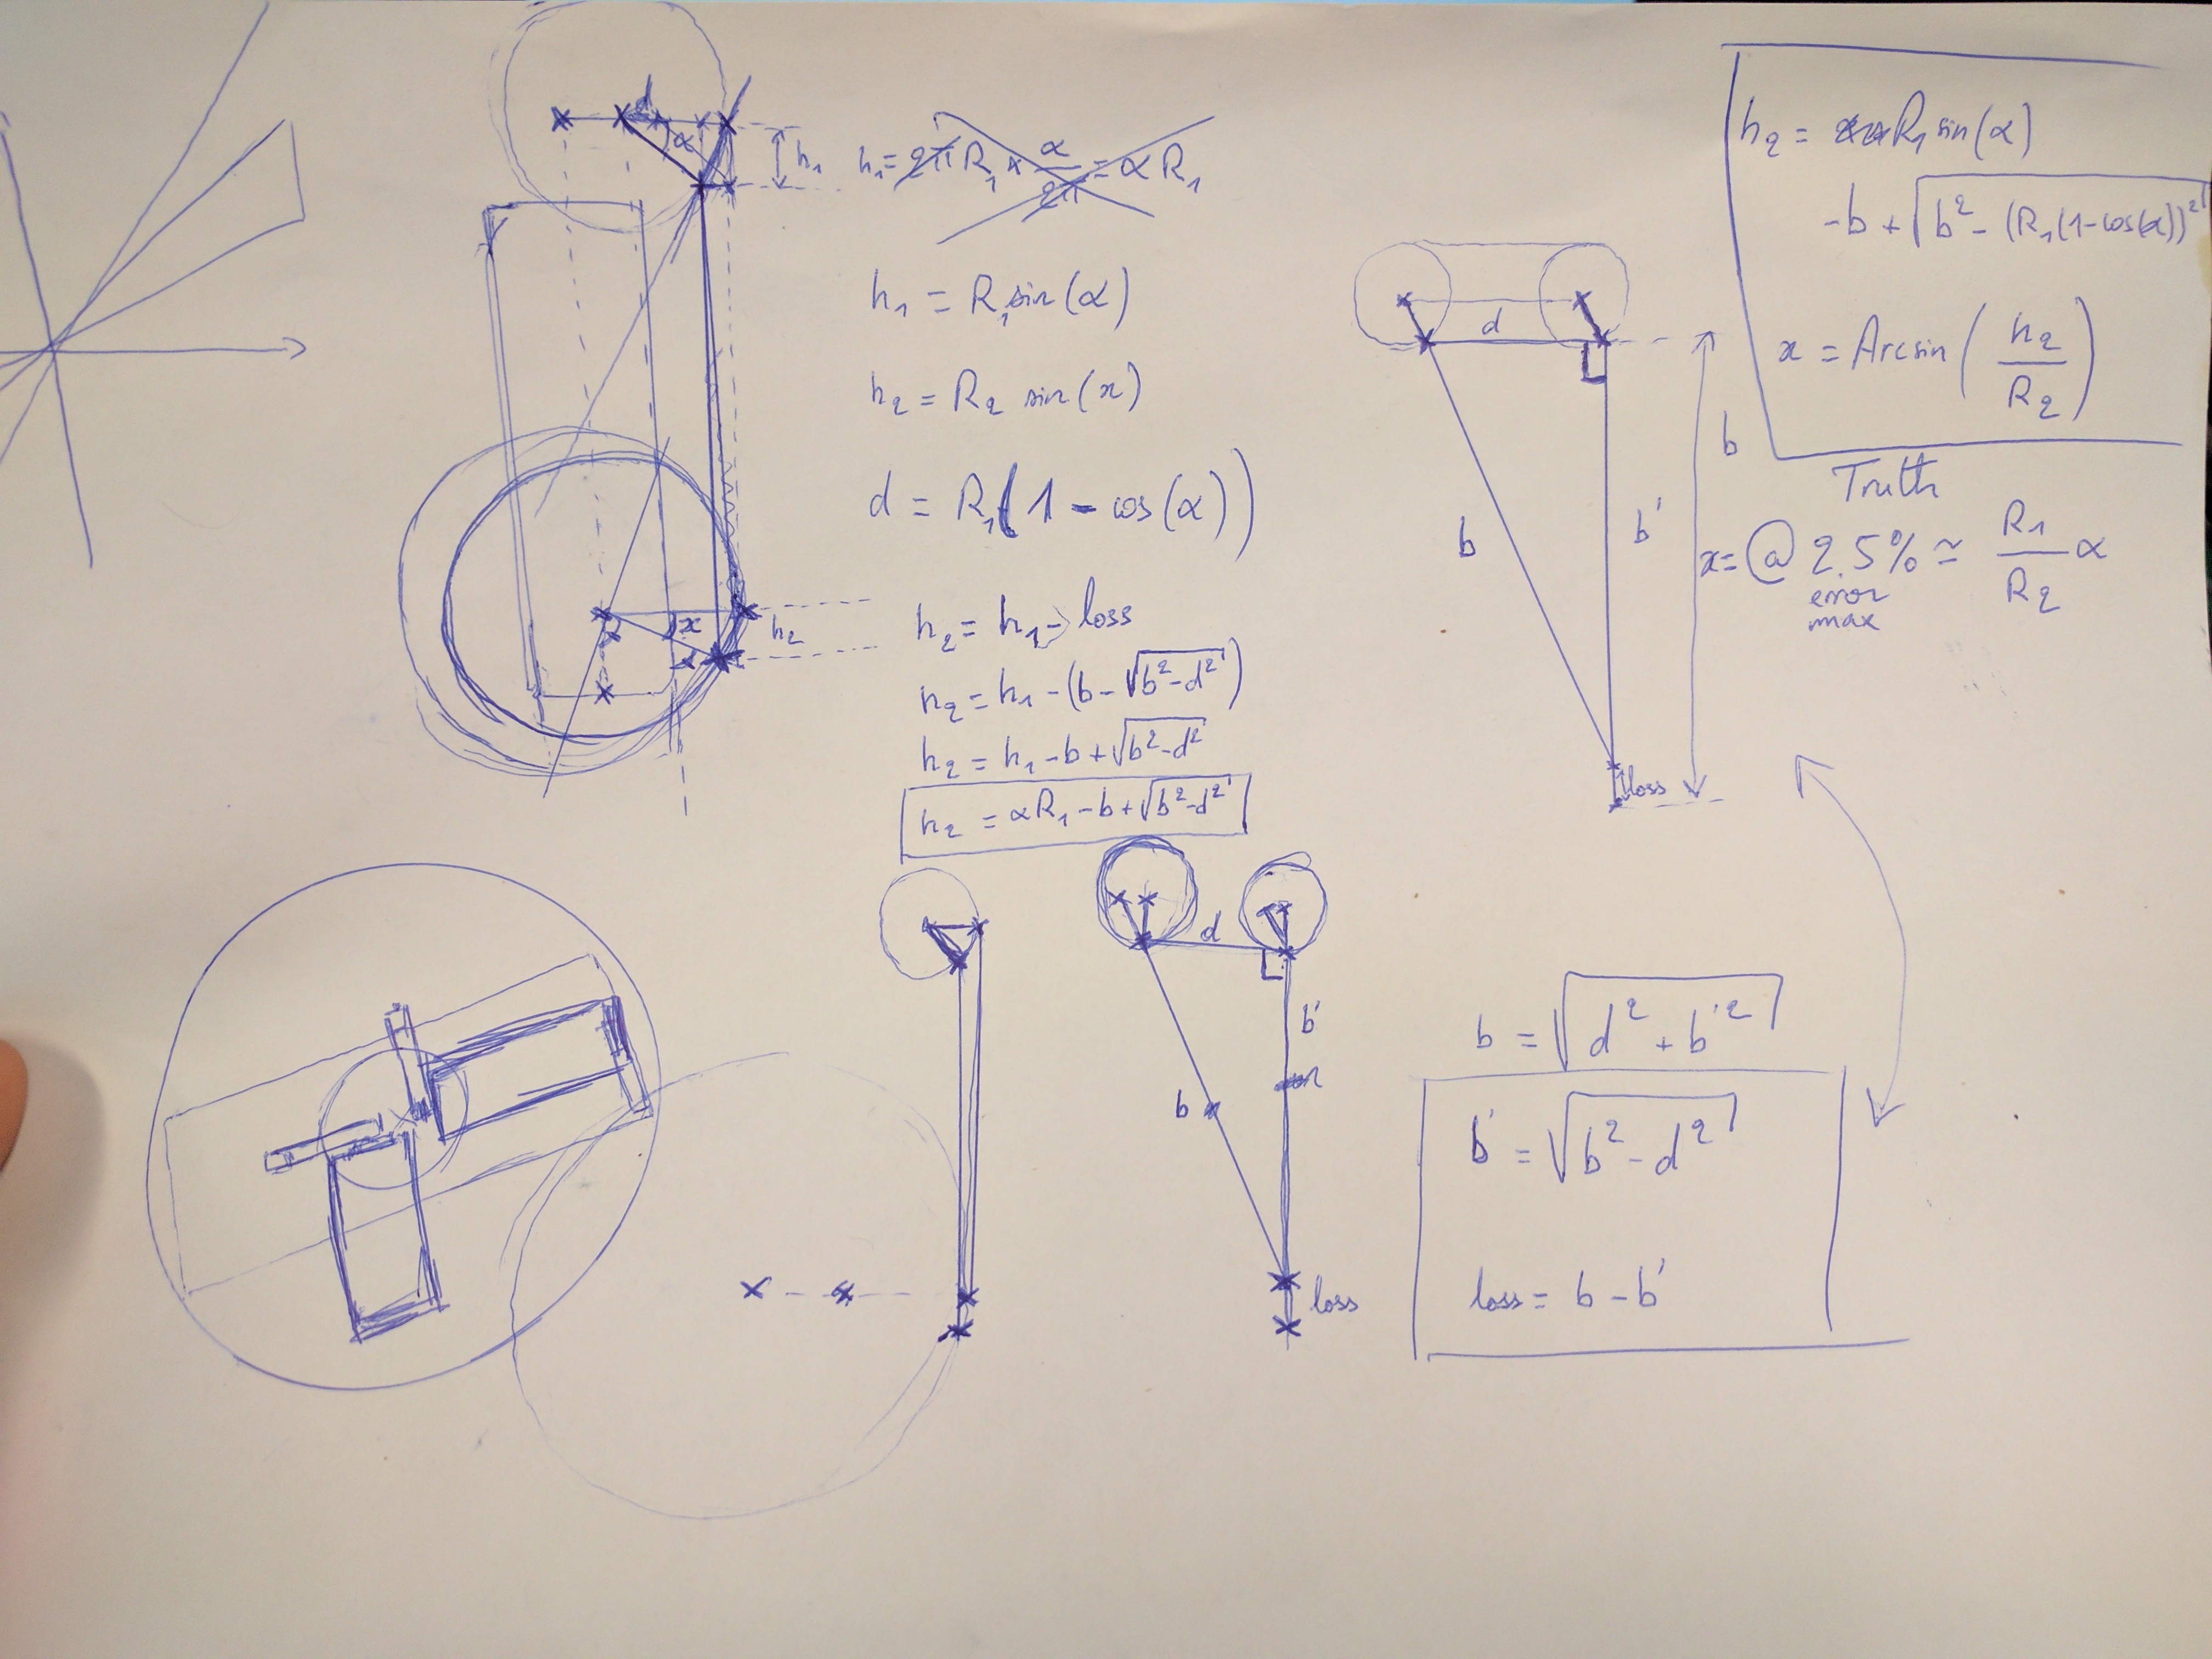 d
α
h₁
h₁ = 2π R₁ × α/2π = α R₁
h₁ = R₁ sin(α)
h₂ = R₂ sin(x)
d = R₁(1 - cos(α))
x
h₂
h₂ = h₁ - loss
h₂ = h₁ - (b - √(b² - d²))
h₂ = h₁ - b + √(b² - d²)
h₂ = αR₁ - b + √(b² - d²)
d
b
b'
b
loss
h₂ = R₁ sin(α)
-b + √(b² - (R₁(1-cos(α))²)
x = Arcsin(h₂/R₂)
Truth
x = @ 2.5% ≃ R₁/R₂ α
error
max
d
b'
b
loss
b = √(d² + b'²)
b' = √(b² - d²)
loss = b - b'